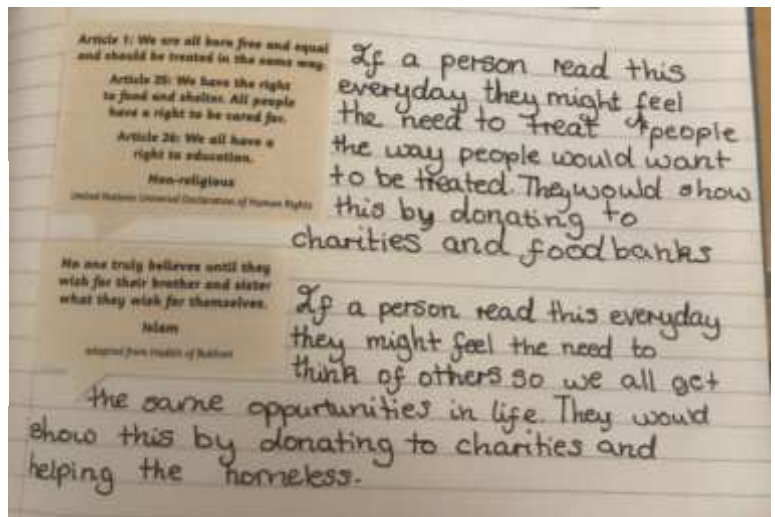 Article 1: We are all born free and equal
and should be treated in the same way.
Article 25: We have the right
to food and shelter. All people
have a right to be cared for.
Article 26: We all have a
right to education.
Non-religious
United Nations Universal Declaration of Human Rights
If a person read this
everyday they might feel
the need to treat people
the way people would want
to be treated. They would show
this by donating to
charities and food banks
No one truly believes until they
wish for their brother and sister
what they wish for themselves.
Islam
adapted from Hadith of Bukhari
If a person read this everyday
they might feel the need to
think of others so we all get
the same oppurtunities in life. They would
show this by donating to charities and
helping the homeless.